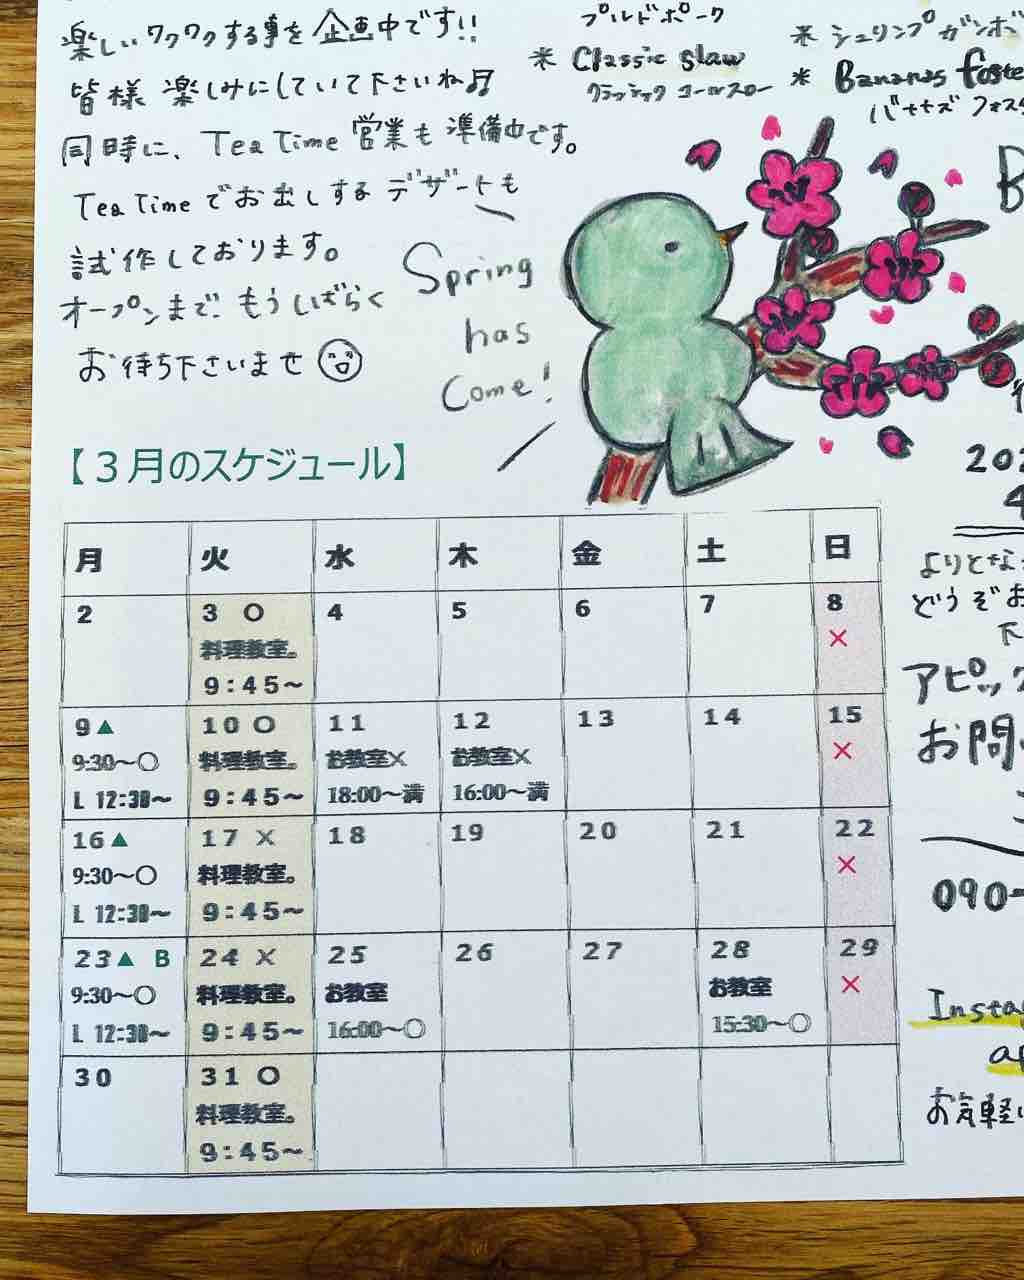 楽しいワクワクする事を企画中です!!
皆様 楽しみにしていて下さいね♬
同時に、Tea Time 営業も準備中です。
Tea Time でお出しするデザートも
試作しております。
オープンまで、もうしばらく
お待ち下さいませ
プルドポーク
* Classic slaw
クラッシック コールスロー
* シュリンプ ガンボ
* Bananas foste
バナナズ フォスタ
B
Spring
has
Come!
【3月のスケジュール】
月 火 水 木 金 土 日
2 3 〇 4 5 6 7 8
料理教室。 ×
9:45~
9▲ 10 〇 11 12 13 14 15
9:30~〇 料理教室。 お教室× お教室× ×
L 12:30~ 9:45~ 18:00~満 16:00~満
16▲ 17 × 18 19 20 21 22
9:30~〇 料理教室。 ×
L 12:30~ 9:45~
23▲ B 24 × 25 26 27 28 29
9:30~〇 料理教室。 お教室 お教室 ×
L 12:30~ 9:45~ 16:00~〇 15:30~〇
30 31 〇
料理教室。
9:45~
202
4
よりとな
どうぞお
下
アピック
お問い
090-
Insta
ap
お気軽